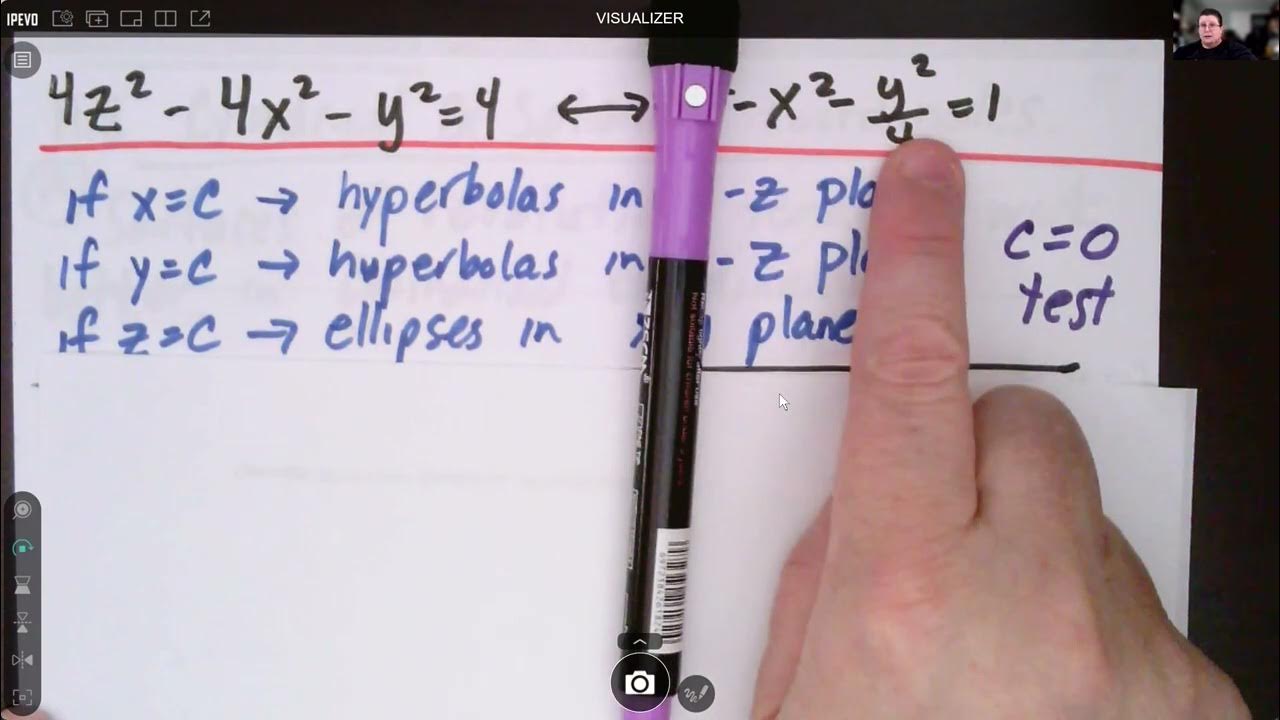 IPEVO
VISUALIZER
4z² - 4x² - y² = 4 ⟷ - x² - y²/4 = 1
if x=c → hyperbolas in -z pla
if y=c → huperbolas in - z pla
if z=c → ellipses in plane
c=0
test